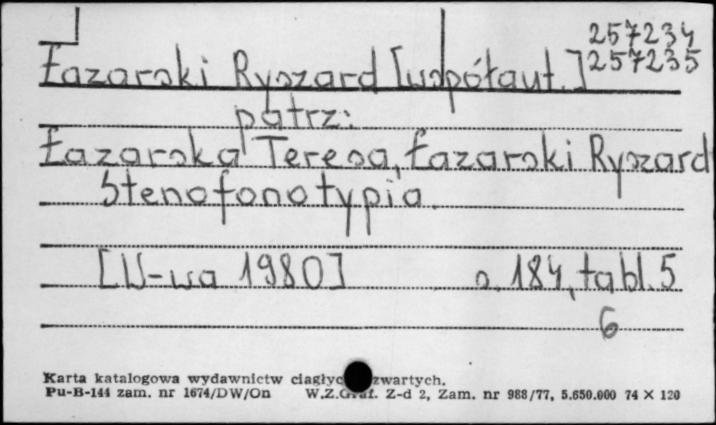 257234
Łazarski Ryszard [współaut.] 257235
patrz:
Łazarska Teresa, Łazarski Ryszard
Stenofonotypia.
[W-wa 1980] s. 184, tabl. 5
6
Karta katalogowa wydawnictw ciągłyc zwartych.
Pu-B-144 zam. nr 1674/DW/On W.Z.Graf. Z-d 2, Zam. nr 988/77, 5.650.000 74 X 120